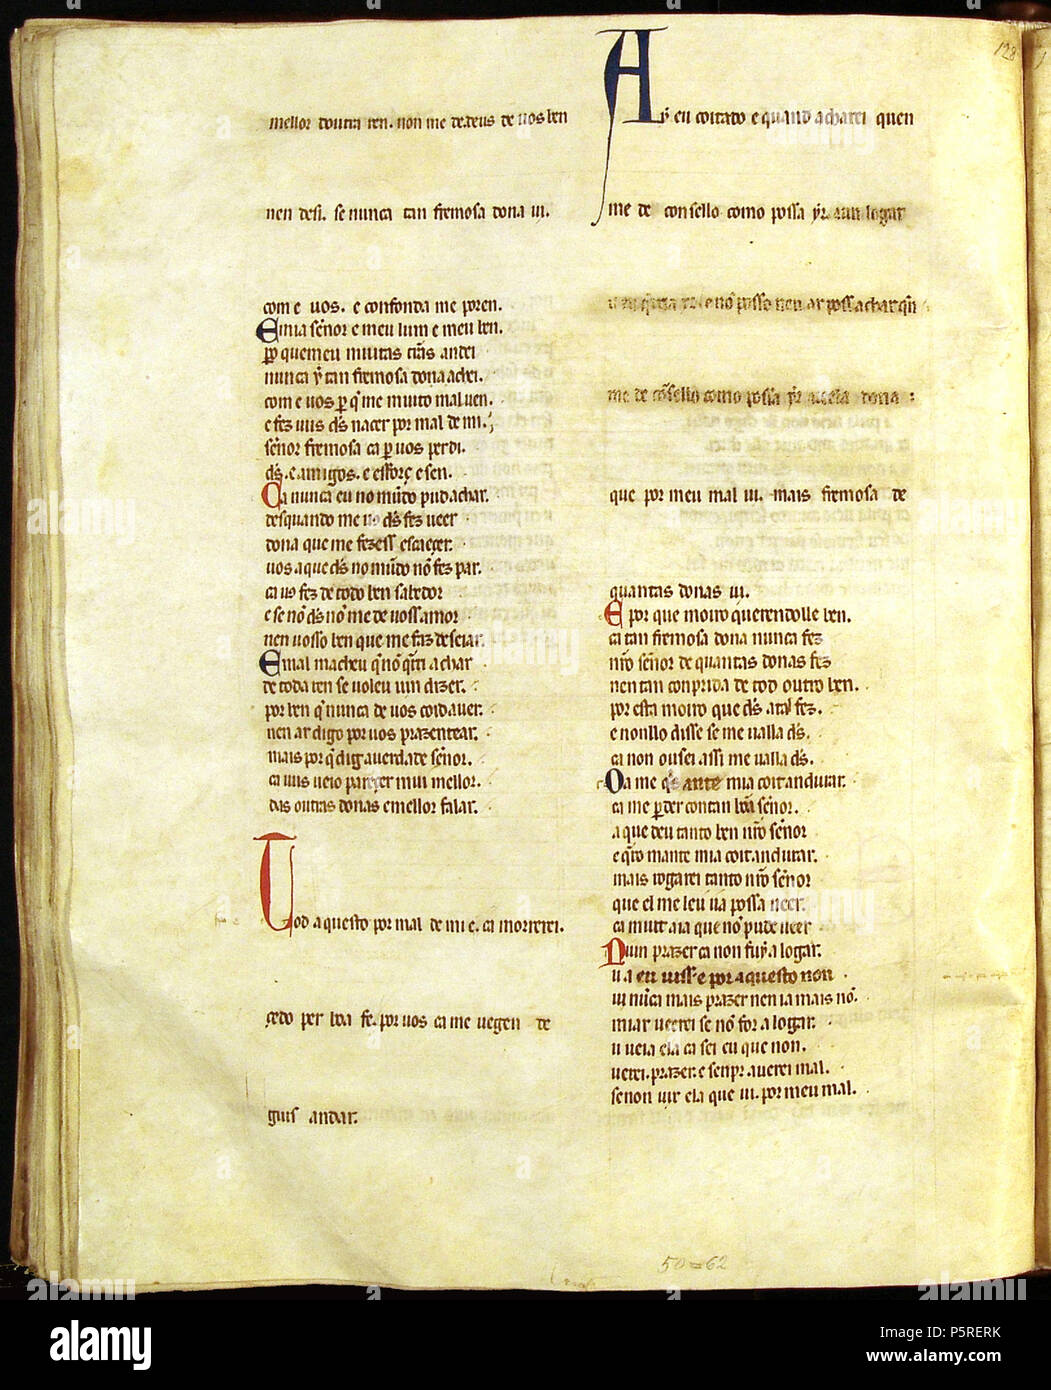 mellor doutra ren. non me de deus de uos ben
nen desi. se nunca tan fremosa dona ui.
com e uos. e confonda me poren.
E mia señor e meu lum e meu ben.
per quem eu muitas trãs andei
nunca ỹ tan fremosa dona achei.
com e uos per q̃ me muito mal uen.
e fez uus ds̃ nacer por mal de mi.
señor fremosa ca per uos perdi.
ds̃. e amigos. e esforç e sen.
Ca nunca eu no mũdo pud achar.
des quando me ds̃ fez ueer
dona que me fezess escaeçer.
uos a que ds̃ no mũdo nõ fez par.
ca uꝯ fez de todo ben sabedor
e se nõ ds̃ nõ me de uoss amor
nen uosso ben que me faz deseiar.
E mal mach eu q̃ nõ q̃ti achar
de toda ren se uol eu uin dizer.
por ben q̃ nunca de uos coid auer.
nen ar digo por uos prazentear.
mais por q̃ dig a uerdade señor.
ca uus ueio pareçer mui mellor.
das outras donas e mellor falar.
Tod aquesto por mal de mi e. ca morrerei.
çedo per bõa fe. por uos ca me uegen de
guis andar.
Ay eu coitado e quand acharei quen
me de consello como possa ỹr a un logar
nõ posso neu ar poss achar q̃n
me de cõsello como possa ỹr dona
que por meu mal ui. mais fremosa de
quantas donas ui.
E por que moiro querendolle ben.
ca tan fremosa dona nunca fez
nr̃o señor de quantas donas fez
nen tan conprida de tod outro ben.
por esta moiro que ds̃ atal fez.
e nonllo disse se me ualla ds̃.
ca non ousei assi me ualla ds̃.
Ca me q̃s ante mia coit andurar.
ca me perder con tan bõa señor.
a que deu tanto ben nr̃o señor
e q̃ro mante mia coit andurar.
mais rogarei tanto nr̃o señor
que el me leu u a possa ueer.
ca muit a ia que nõ pude ueer
Niun prazer ca non fuỹ a logar.
u a eu uisse e por aquesto non
ui nũca mais prazer nen ia mais nõ.
mi ar uerrei se nõ for a logar.
u ueia ela ca sei eu que non.
uerei. prazer. e senpr auerei mal.
se non uir ela que ui. por meu mal.
128
50=62
alamy
Image ID: P5RERK
www.alamy.com